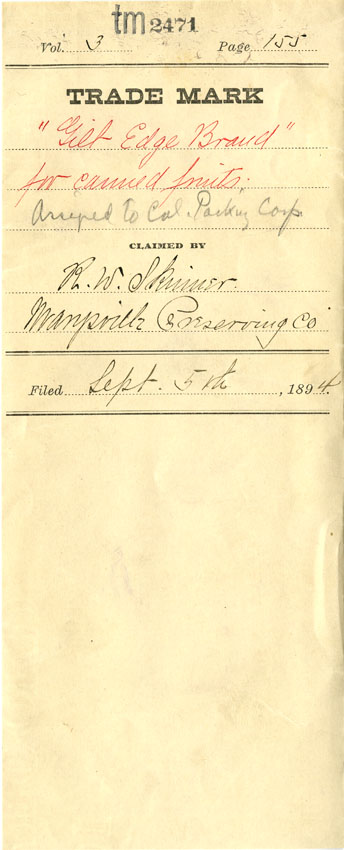 tm 2471
Vol. 3 Page 155
TRADE MARK
"Gilt Edge Brand"
for canned fruits.
Assigned to Cal. Packing Corp.
CLAIMED BY
R. W. Skinner
Marysville Preserving Co
Filed Sept. 5th, 1894.